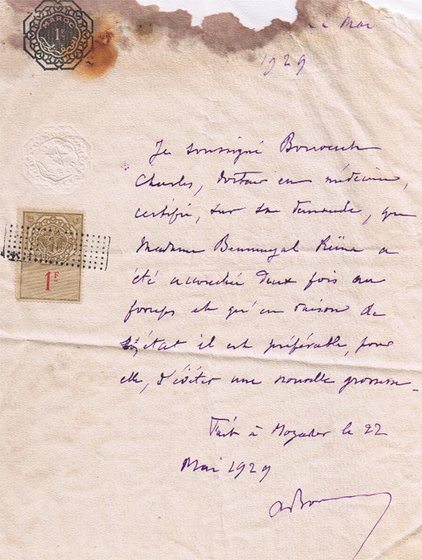 MAROC
1F
22 Mai
1929
Je soussigné
Charles, docteur en médecine,
certifie, sur sa demande, que
Madame Reine a
été accouchée deux fois au
forceps et qu'en raison de
son état il est préférable, pour
elle, d'éviter une nouvelle grossesse.
Fait à Mogador le 22
Mai 1929
1F